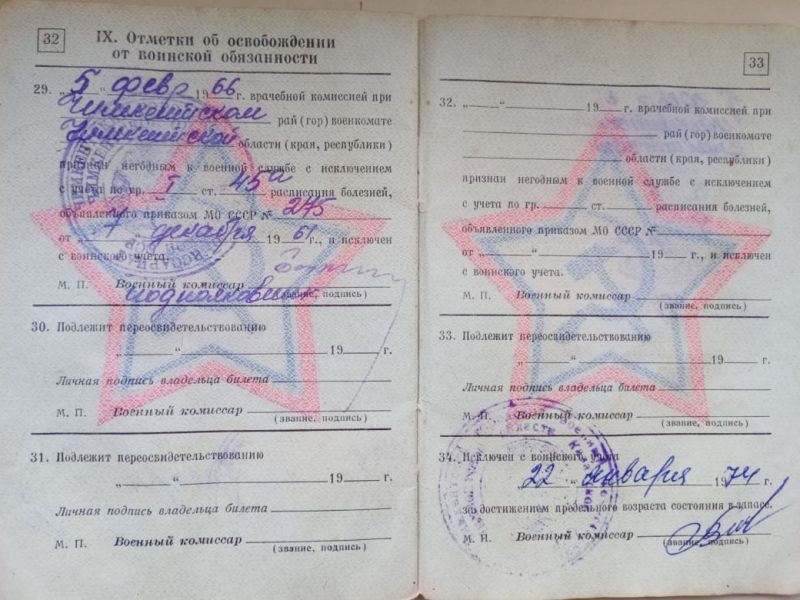 32
IX. Отметки об освобождении
от воинской обязанности
29. „ 5 “ февр 1966 г. врачебной комиссией при
Чимкентском рай (гор) военкомате
Чимкентской области (края, республики)
признан негодным к военной службе с исключением
с учета по гр. I ст. 45а расписания болезней,
объявленного приказом МО СССР № 275
от „ 7 “ декабря 1961 г., и исключен
с воинского учета.
М. П. Военный комиссар
подполковник (звание, подпись)
30. Подлежит переосвидетельствованию
„ “ 19 г.
Личная подпись владельца билета
М. П. Военный комиссар
(звание, подпись)
31. Подлежит переосвидетельствованию
„ “ 19 г.
Личная подпись владельца билета
М. П. Военный комиссар
(звание, подпись)
33
32. „ “ 19 г. врачебной комиссией при
рай (гор) военкомате
области (края, республики)
признан негодным к военной службе с исключением
с учета по гр. ст. расписания болезней,
объявленного приказом МО СССР №
от „ “ 19 г., и исключен
с воинского учета.
М. П. Военный комиссар
(звание, подпись)
33. Подлежит переосвидетельствованию
„ “ 19 г.
Личная подпись владельца билета
М. П. Военный комиссар
(звание, подпись)
34. Исключен с воинского учета
22 “ января 1974 г.
за достижением предельного возраста состояния в запасе.
М. П. Военный комиссар
(звание, подпись)